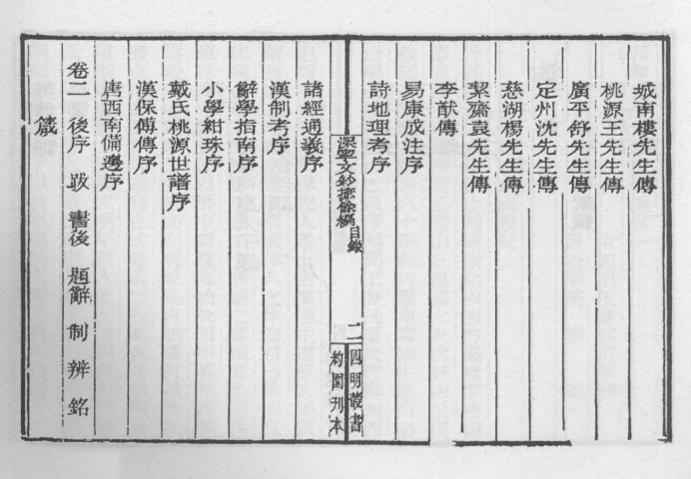 城南樓先生傳
桃源王先生傳
廣平舒先生傳
定州沈先生傳
慈湖楊先生傳
絜齋袁先生傳
李猷傳
易康成注序
詩地理考序
深寧文鈔摭餘編 目錄 二 四明叢書
約園刊本
諸經通義序
漢制考序
辭學指南序
小學紺珠序
戴氏桃源世譜序
漢保傅傳序
唐西南備邊序
卷二 後序 跋 書後 題辭 制 辨 銘
箴